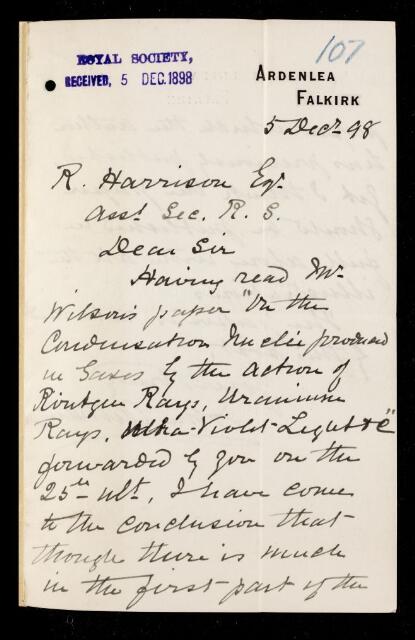 107
ROYAL SOCIETY,
RECEIVED, 5 DEC. 1898
ARDENLEA
FALKIRK
5 Decr 98
R. Harrison Eqr
Asst. Sec. R. S.
Dear Sir
Having read Mr
Wilson's paper "On the
Condensation Nuclei produced
in Gases by the action of
Röntgen Rays, Uranium
Rays, Ultra-Violet-Light &c"
forwarded by you on the
25th ult, I have come
to the conclusion that
though there is much
in the first part of the